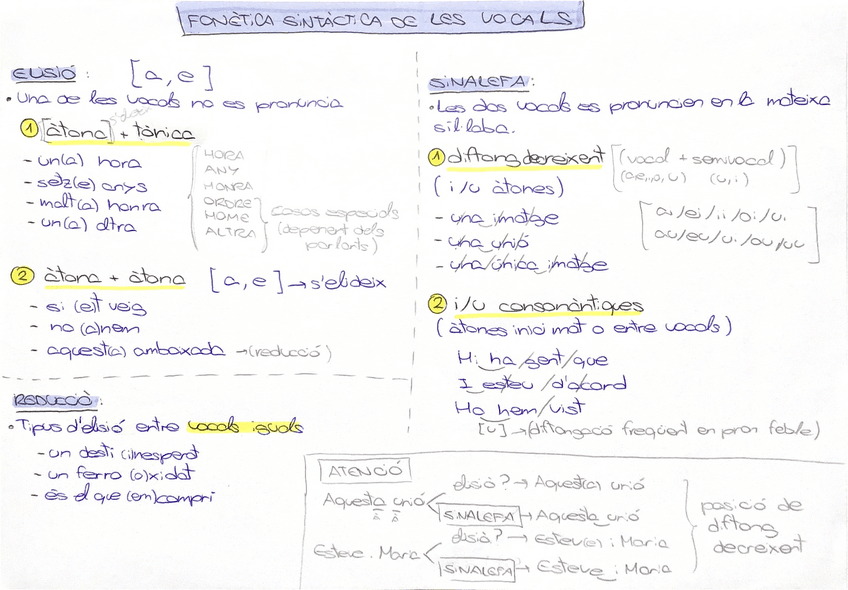 FONÈTICA SINTÀCTICA DE LES VOCALS
ELISIÓ: [a, e]
• Una de les vocals no es pronúncia
① [àtona] + tònica
- un(a) hora
- setz(e) anys
- molt(a) honra
- un(a) altra
HORA
ANY
HONRA
ORDRE
HOME
ALTRA
casos especials
(depenent dels
parlants)
② àtona + àtona [a, e] → s'elideix
- si (e)t veig
- no (a)nem
- aquest(a) ambaixada → (reducció)
REDUCCIÓ:
• Tipus d'elisió entre vocals iguals
- un destí (i)nesperat
- un ferro (o)xidat
- és el que (em) compri
SINALEFA:
• Les dos vocals es pronuncien en la mateixa
síl·laba.
① diftong decreixent [(vocal + semivocal)
(a,e,i,o,u) (u,i)]
(i/u àtones)
- una imatge
- una unió
- una/única imatge
[ai/ei/ii/oi/ui
au/eu/iu/ou/uu]
② i/u consonàntiques
(àtones inici mot o entre vocals)
Hi ha/gent/que
I esteu/d'acord
Ho hem/vist
[u] → (diftongació freqüent en pron feble)
ATENCIÓ
Aquesta unió
elisió? → Aquest(a) unió
SINALEFA → Aquesta unió
Esteve i Maria
elisió? → Estev(e) i Maria
SINALEFA → Esteve i Maria
posició de
diftong
decreixent